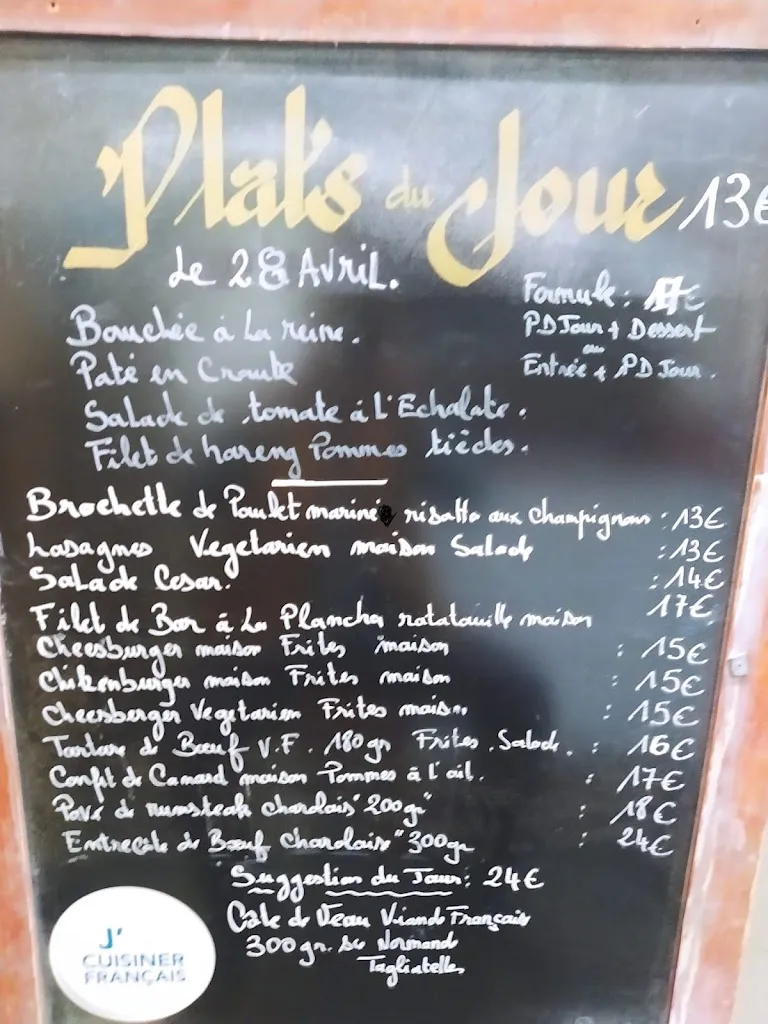 Plats du Jour 13€
Le 28 Avril.
Formule : 17€
PD Jour + Dessert
ou
Entrée + PD Jour.
Bouchée à La reine.
Paté en Croute
Salade de tomate à l'Echalate.
Filet de hareng Pommes tièdes.
Brochette de Poulet mariné risotto aux champignon : 13€
Lasagnes Vegetarien maison Salade : 13€
Salade Cesar. : 14€
Filet de Bar à La Plancha ratatouille maison 17€
Cheesburger maison Frites maison : 15€
Chikenburger maison Frites maison : 15€
Cheesberger Vegetarien Frites maison : 15€
Tartare de Bœuf V.F. 180gr Frites. Salade. : 16€
Confit de Canard maison Pommes à l'ail. : 17€
Pavé de rumsteak charolais "200gr" : 18€
Entrecote de Bœuf Charolaise "300gr : 24€
Suggestion du Jour : 24€
Cote de Veau Viande Français
300gr. Sc Normand
Tagliatelles
J'
CUISINER
FRANÇAIS